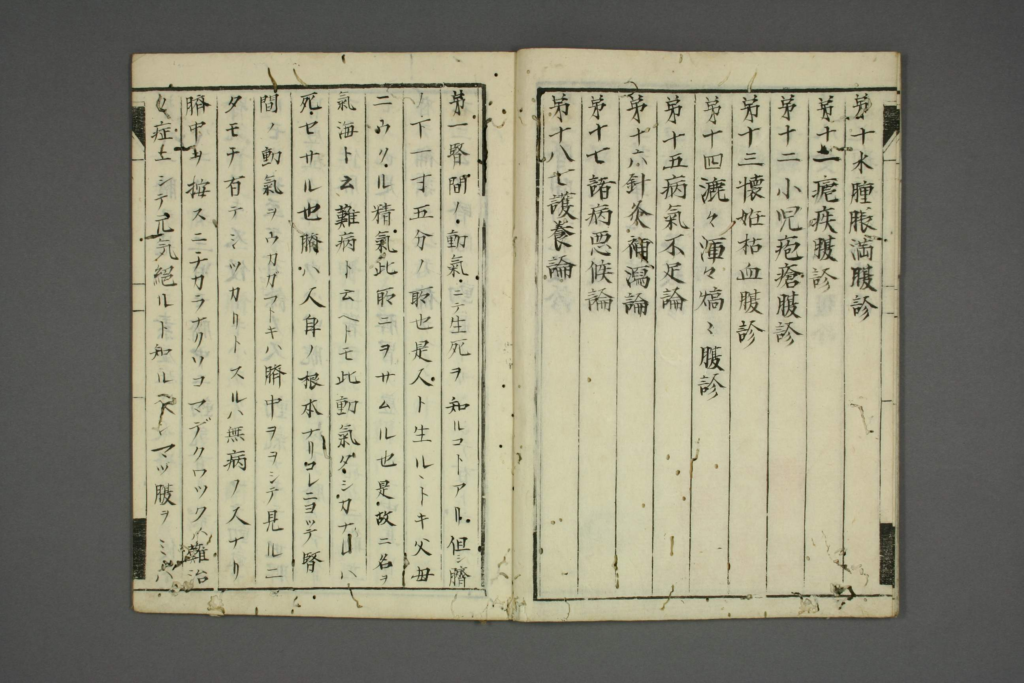 第十水腫脹満腹診
第十一瘧疾腹診
第十二小児疱瘡腹診
第十三懐妊枯血腹診
第十四漉々渾々熇〻腹診
第十五病氣不足論
第十六針灸補瀉論
第十七諸病悪候論
第十八七護養論
第一腎間ノ動氣ニテ生死ヲ知ルコトアル但シ臍
ノ下一寸五分ノ所也是人ト生ルヽトキ父母
ニウクル精氣此所ニヲサムル也是故ニ名ヲ
氣海ト云難病ト云ヘトモ此動氣タシカナレハ
死セサル也臍ハ人身ノ根本ナリコレニヨツテ腎
間ノ動氣ヲウカガフトキハ臍中ヲヲシテ見ルニ
タモチ有テミツカリトスルハ無病ノ人ナリ
臍中ヲ按スニチカラナクウコマデクワツク難治
ノ症土シテ元気絶ルト知ルヘシマツ腹ヲ